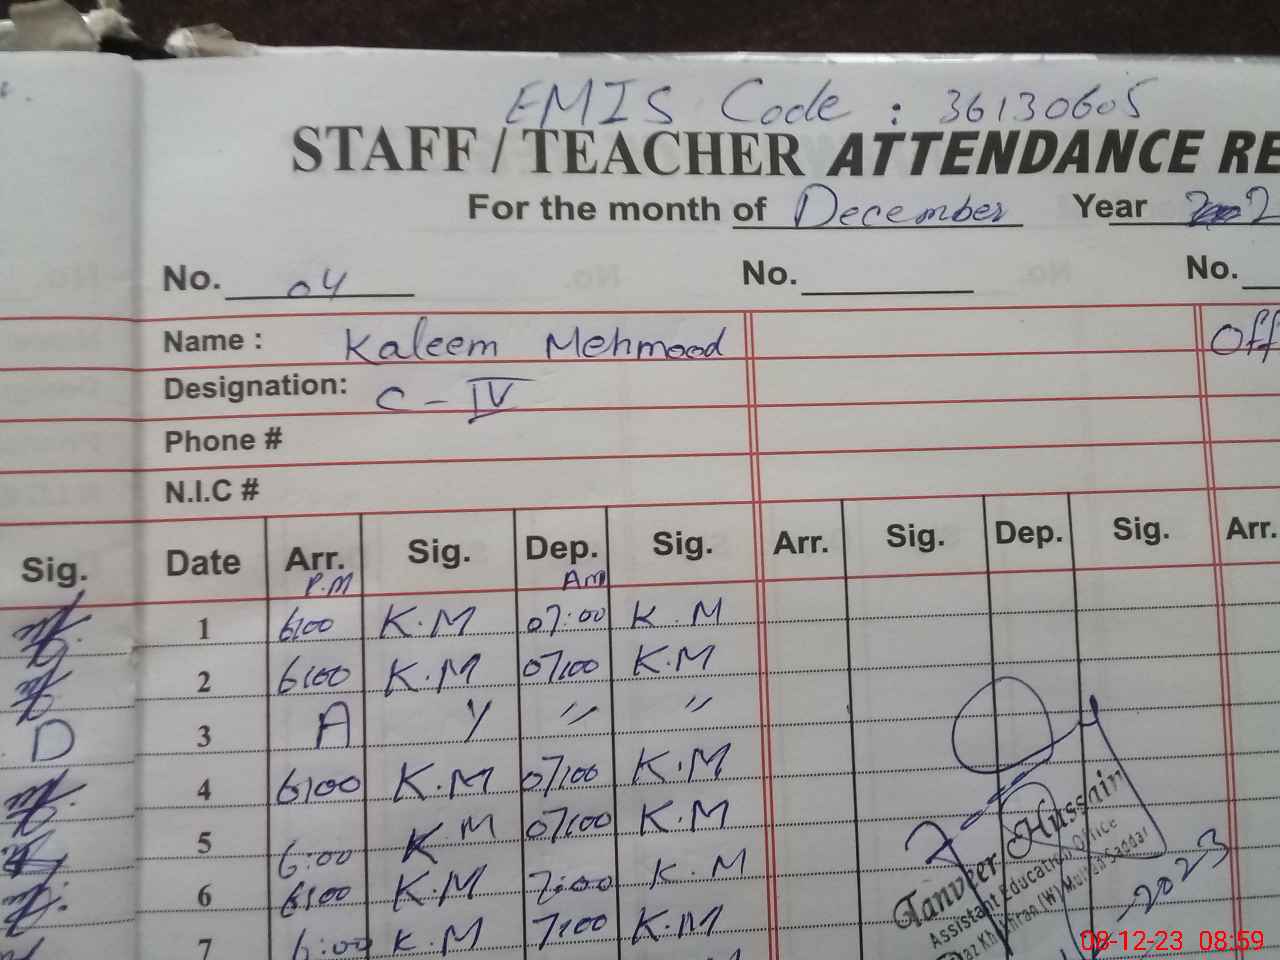 EMIS Code : 36130605
STAFF / TEACHER ATTENDANCE RE
For the month of December Year
No. 04 No. No.
Name : Kaleem Mehmood Off
Designation: C - IV
Phone #
N.I.C #
Sig. Date Arr. Sig. Dep. Sig. Arr. Sig. Dep. Sig. Arr.
P.M Am
1 6:00 K.M 07:00 K.M
2 6:00 K.M 07:00 K.M
D 3 A 〃 〃 〃
4 6:00 K.M 07:00 K.M
5 6:00 K.M 07:00 K.M
6 6:00 K.M 7:00 K.M
7 6:00 K.M 7:00 K.M
Tanveer Hussain
Assistant Education Office
(W) Multan Saddar
-2023
08-12-23 08:59